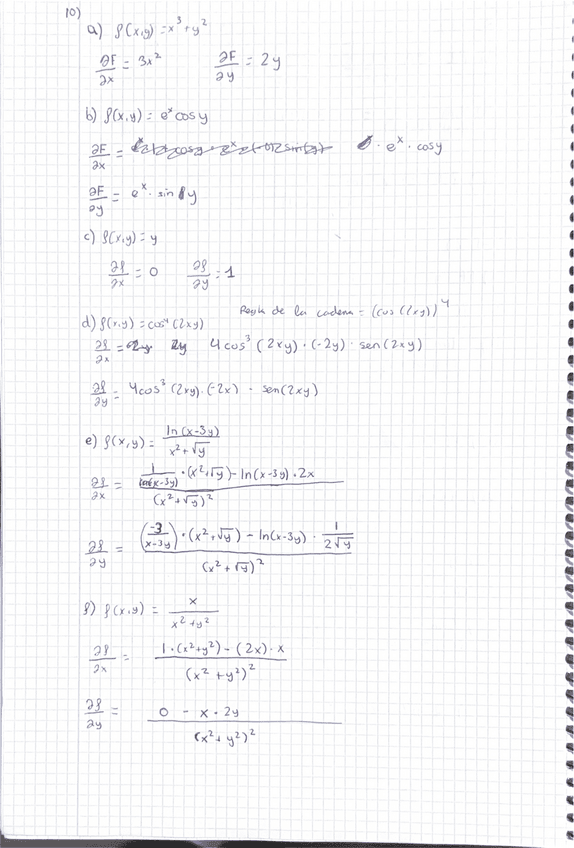 10)
a) f(x,y) = x³ + y²
∂F/∂x = 3x² ∂F/∂y = 2y
b) f(x,y) = eˣ cos y
∂F/∂x = eˣ · cos y
∂F/∂y = eˣ · sin y
c) f(x,y) = y
∂f/∂x = 0 ∂f/∂y = 1
Regla de la cadena = (cos (2xy))⁴
d) f(x,y) = cos⁴ (2xy)
∂f/∂x = 4cos³ (2xy) · (-2y) · sen(2xy)
∂f/∂y = 4cos³ (2xy) · (-2x) · sen(2xy)
e) f(x,y) = ln(x-3y) / (x² + √y)
∂f/∂x = (1/(x-3y) · (x²+√y) - ln(x-3y) · 2x) / (x²+√y)²
∂f/∂y = ((-3/(x-3y)) · (x²+√y) - ln(x-3y) · 1/(2√y)) / (x² + √y)²
f) f(x,y) = x / (x² + y²)
∂f/∂x = (1·(x²+y²) - (2x)·x) / (x² + y²)²
∂f/∂y = (0 - x · 2y) / (x² + y²)²